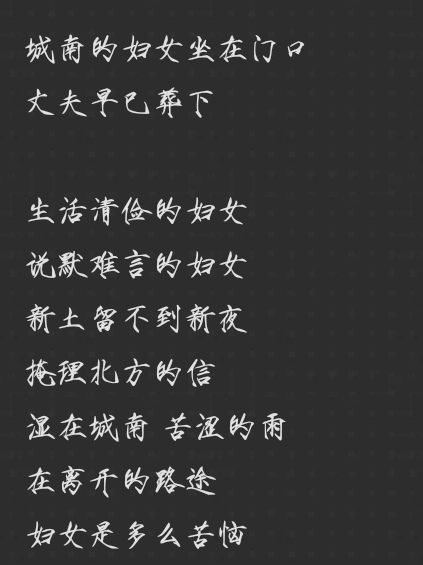 城南的妇女坐在门口
丈夫早已葬下
生活清俭的妇女
说默难言的妇女
新土留不到新夜
掩理北方的信
湿在城南 苦涩的雨
在离开的路途
妇女是多么苦恼